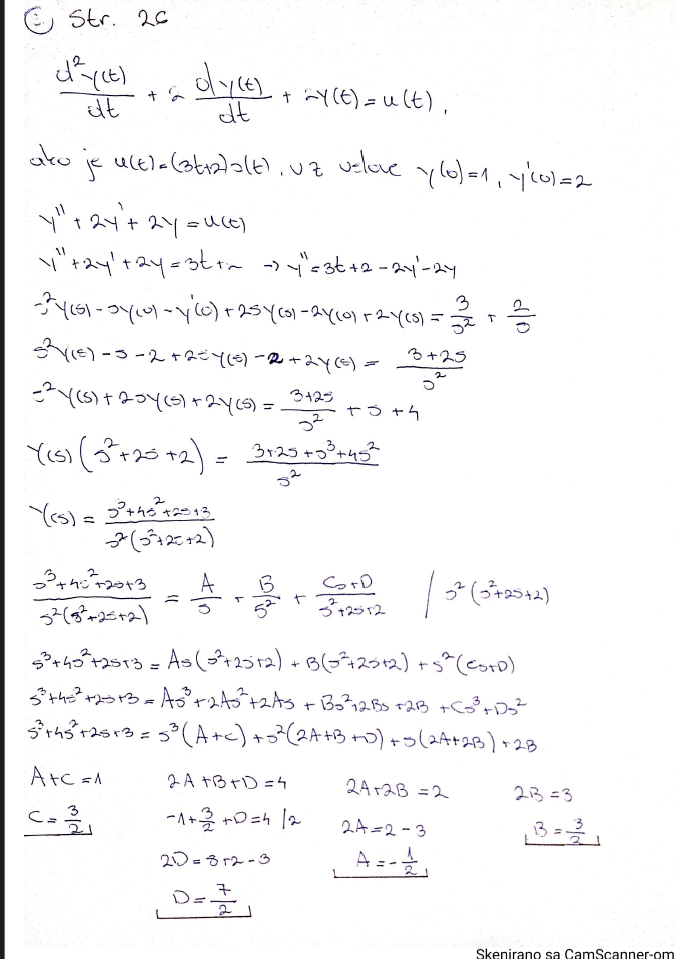 2. Str. 26
d²y(t)/dt + 2 dy(t)/dt + 2y(t) = u(t),
ako je u(t) = (3t+2)s(t), uz uslove y(0)=1, y'(0)=2
y'' + 2y' + 2y = u(t)
y'' + 2y' + 2y = 3t + 2 → y'' = 3t + 2 - 2y' - 2y
s²Y(s) - sy(0) - y'(0) + 2sY(s) - 2y(0) + 2Y(s) = 3/s² + 2/s
s²Y(s) - s - 2 + 2sY(s) - 2 + 2Y(s) = (3+2s)/s²
s²Y(s) + 2sY(s) + 2Y(s) = (3+2s)/s² + s + 4
Y(s)(s² + 2s + 2) = (3+2s+s³+4s²)/s²
Y(s) = (s³+4s²+2s+3)/(s²(s²+2s+2))
(s³+4s²+2s+3)/(s²(s²+2s+2)) = A/s + B/s² + (Cs+D)/(s²+2s+2) / s²(s²+2s+2)
s³+4s²+2s+3 = As(s²+2s+2) + B(s²+2s+2) + s²(Cs+D)
s³+4s²+2s+3 = As³+2As²+2As + Bs²+2Bs+2B + Cs³+Ds²
s³+4s²+2s+3 = s³(A+C) + s²(2A+B+D) + s(2A+2B) + 2B
A+C=1 2A+B+D=4 2A+2B=2 2B=3
C=3/2 -1+3/2+D=4 /2 2A=2-3 B=3/2
2D=8+2-3 A=-1/2
D=7/2
Skenirano sa CamScanner-om